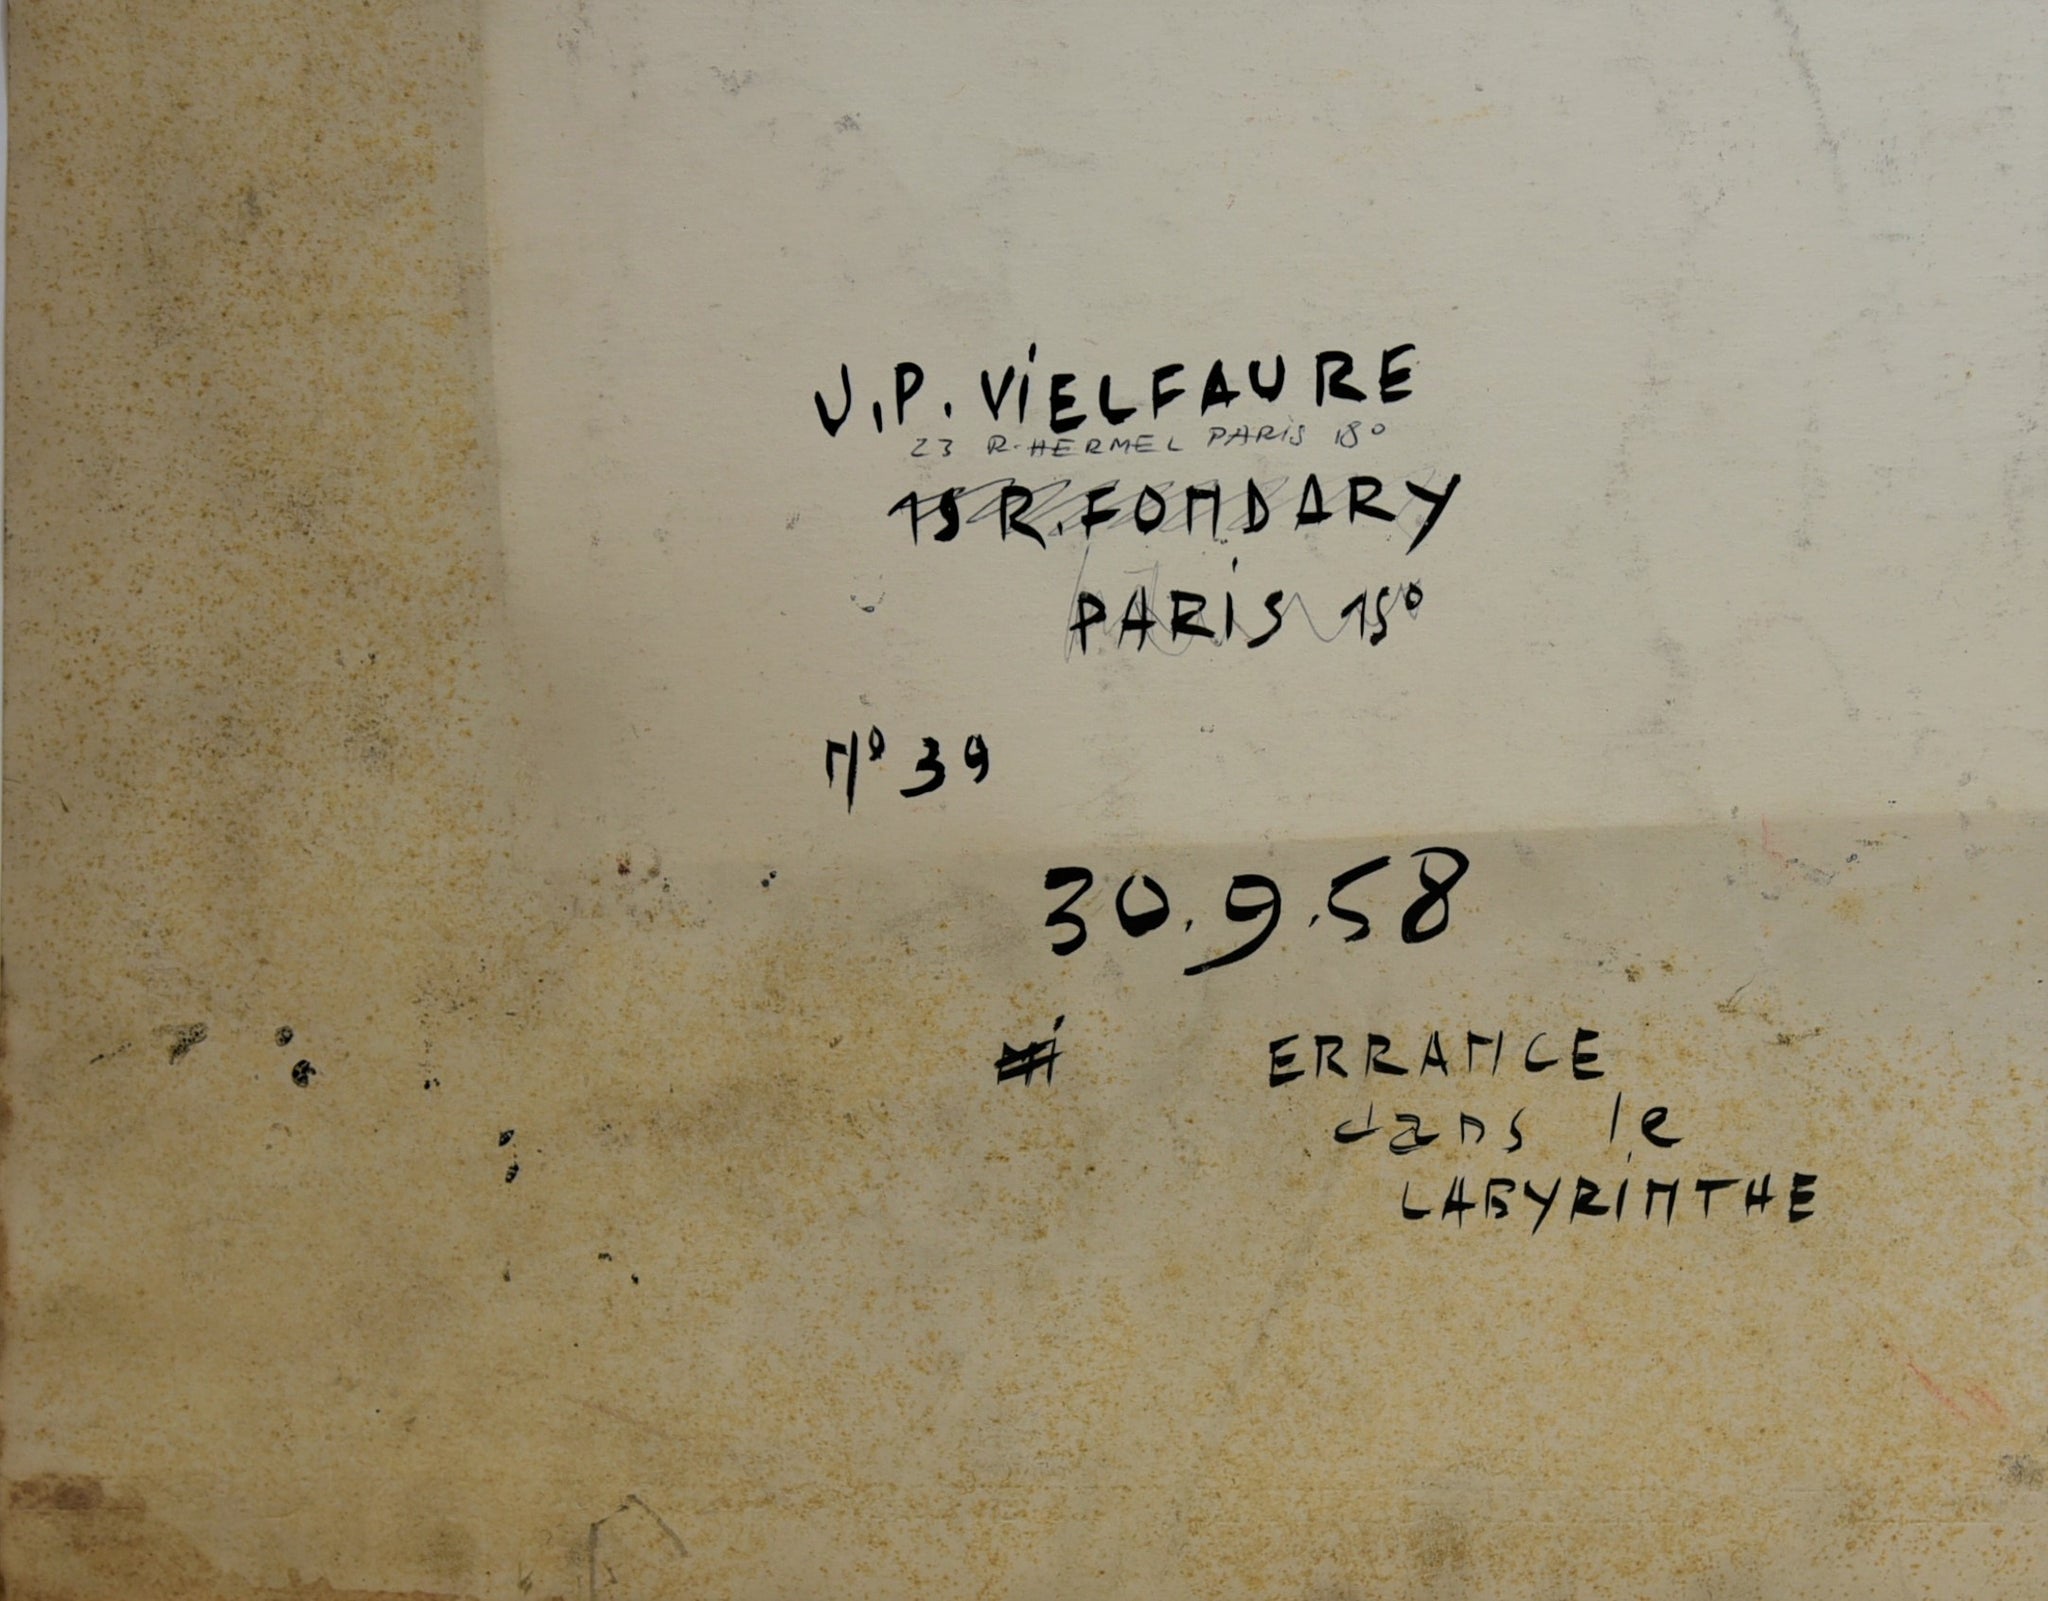 J.P. ViELFAURE
23 R. HERMEL PARiS 18°
15 R. FONDARY
PARiS 15°
N° 39
30.9.58
ERRANCE
dans le
LABYRiNTHE